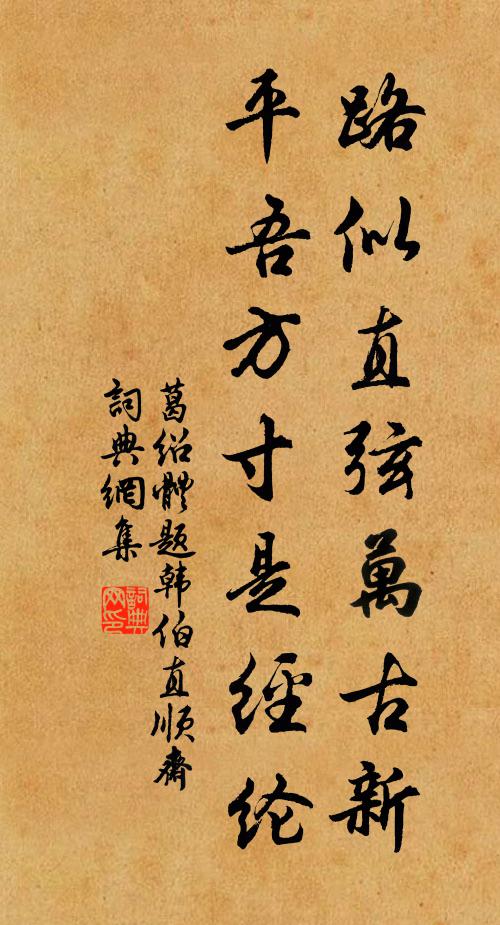 路似直弦萬古新
平吾方寸是經纶
葛绍體题韩伯直順齋
詞典網集
詞典网印